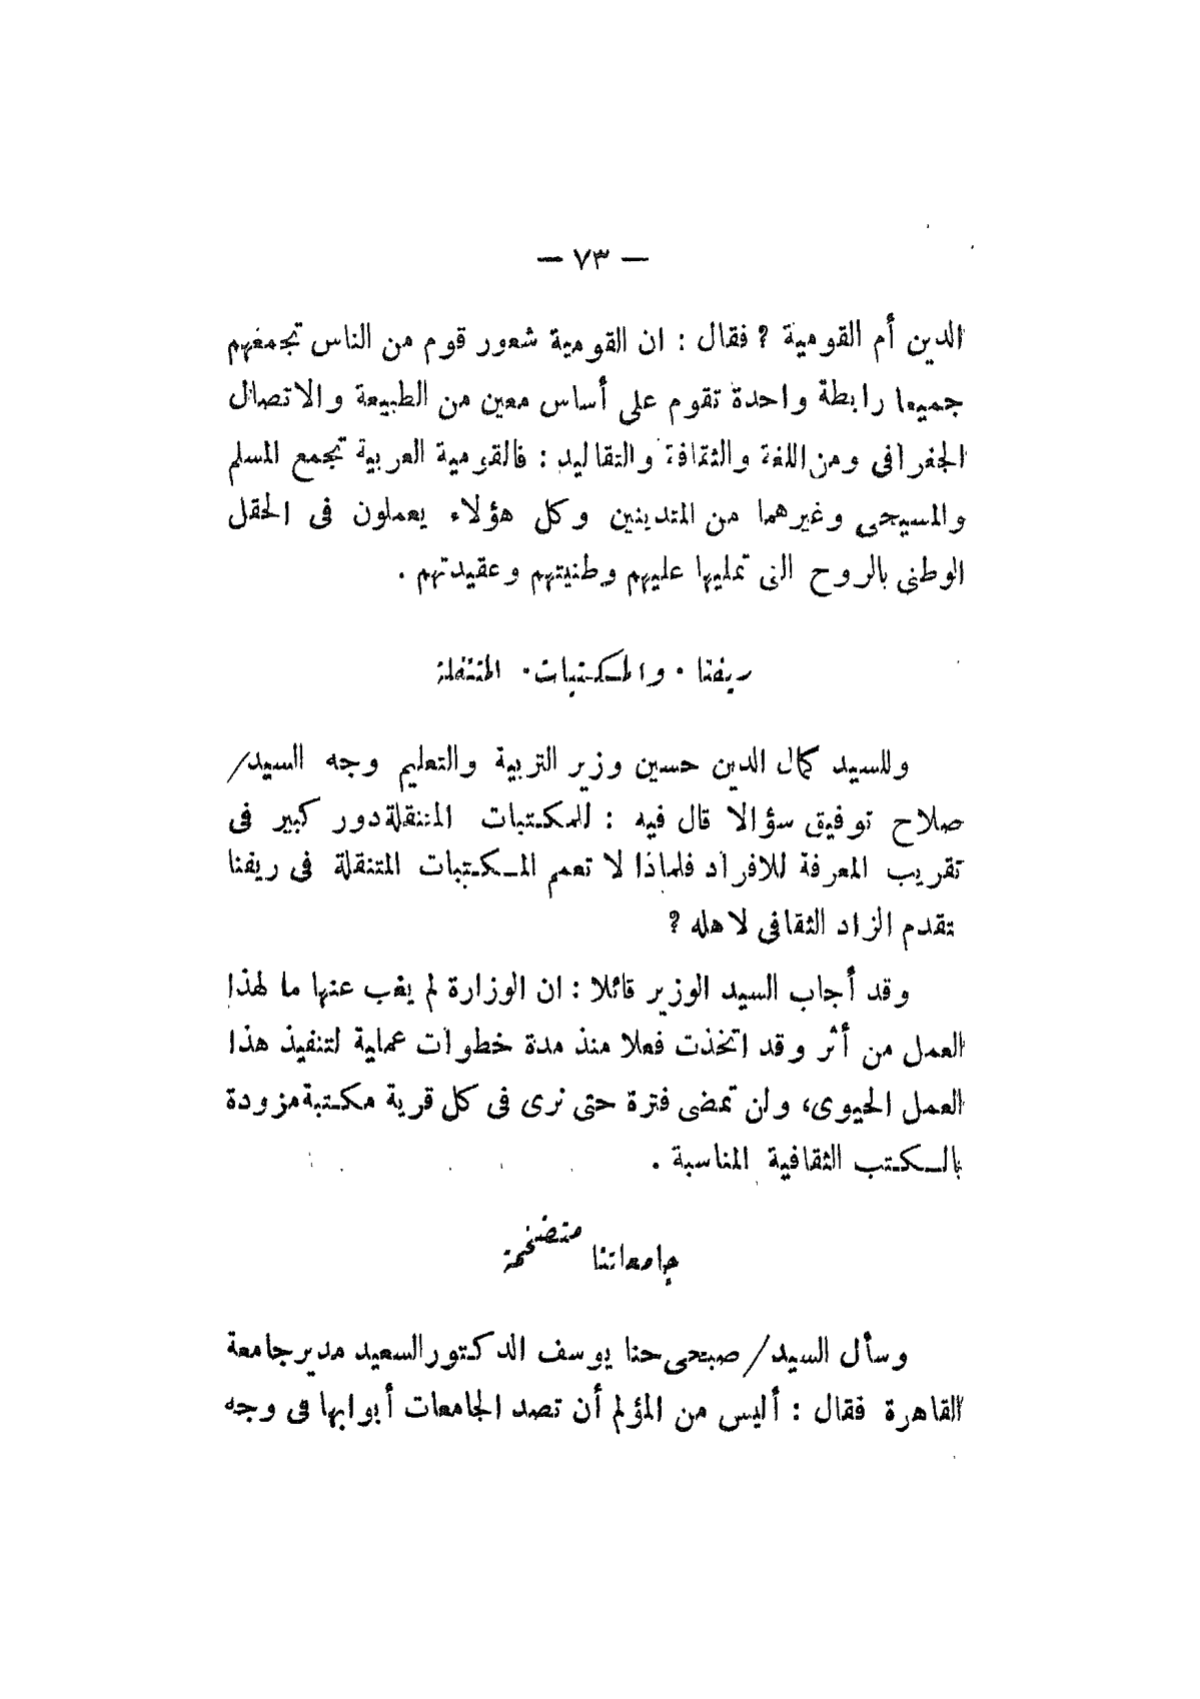 — ٧٣ —
الدين أم القومية ؟ فقال : ان القومية شعور قوم من الناس تجمعهم
جميعا رابطة واحدة تقوم على أساس معين من الطبيعة والاتصال
الجغرافى ومن اللغة والثقافة والتقاليد : فالقومية العربية تجمع المسلم
والمسيحى وغيرهما من المتدينين وكل هؤلاء يعملون فى الحقل
الوطنى بالروح التى تمليها عليهم وطنيتهم وعقيدتهم .
ريفنا . والمكتبات . المتنقلة
وللسيد كمال الدين حسين وزير التربية والتعليم وجه السيد/
صلاح توفيق سؤالا قال فيه : للمكتبات المتنقلة دور كبير فى
تقريب المعرفة للافراد فلماذا لا تعمم المكتبات المتنقلة فى ريفنا
تقدم الزاد الثقافى لاهله ؟
وقد أجاب السيد الوزير قائلا : ان الوزارة لم يغب عنها ما لهذا
العمل من أثر وقد اتخذت فعلا منذ مدة خطوات عملية لتنفيذ هذا
العمل الحيوى، ولن تمضى فترة حتى نرى فى كل قرية مكتبة مزودة
بالكتب الثقافية المناسبة .
جامعاتنا متضخمة
وسأل السيد/ صبحى حنا يوسف الدكتور السعيد مدير جامعة
القاهرة فقال : أليس من المؤلم أن تصد الجامعات أبوابها فى وجه